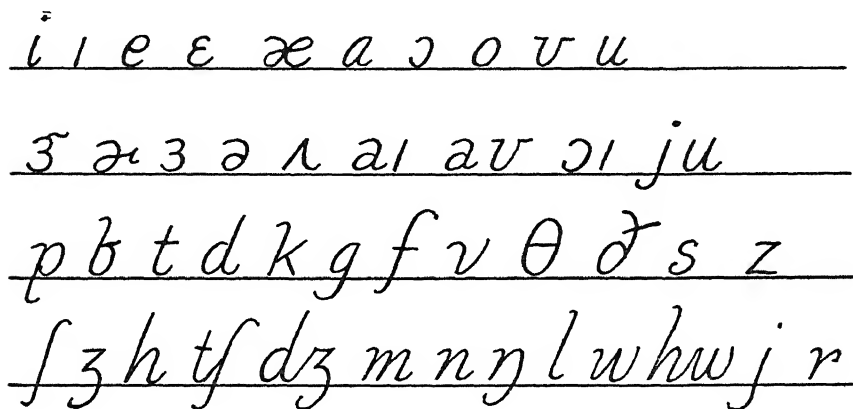 i ɪ e ɛ æ a ɔ o ʊ u
ɝ ɚ ɜ ə ʌ aɪ aʊ ɔɪ ju
p b t d k g f v θ ð s z
ʃ ʒ h tʃ dʒ m n ŋ l w hw j r